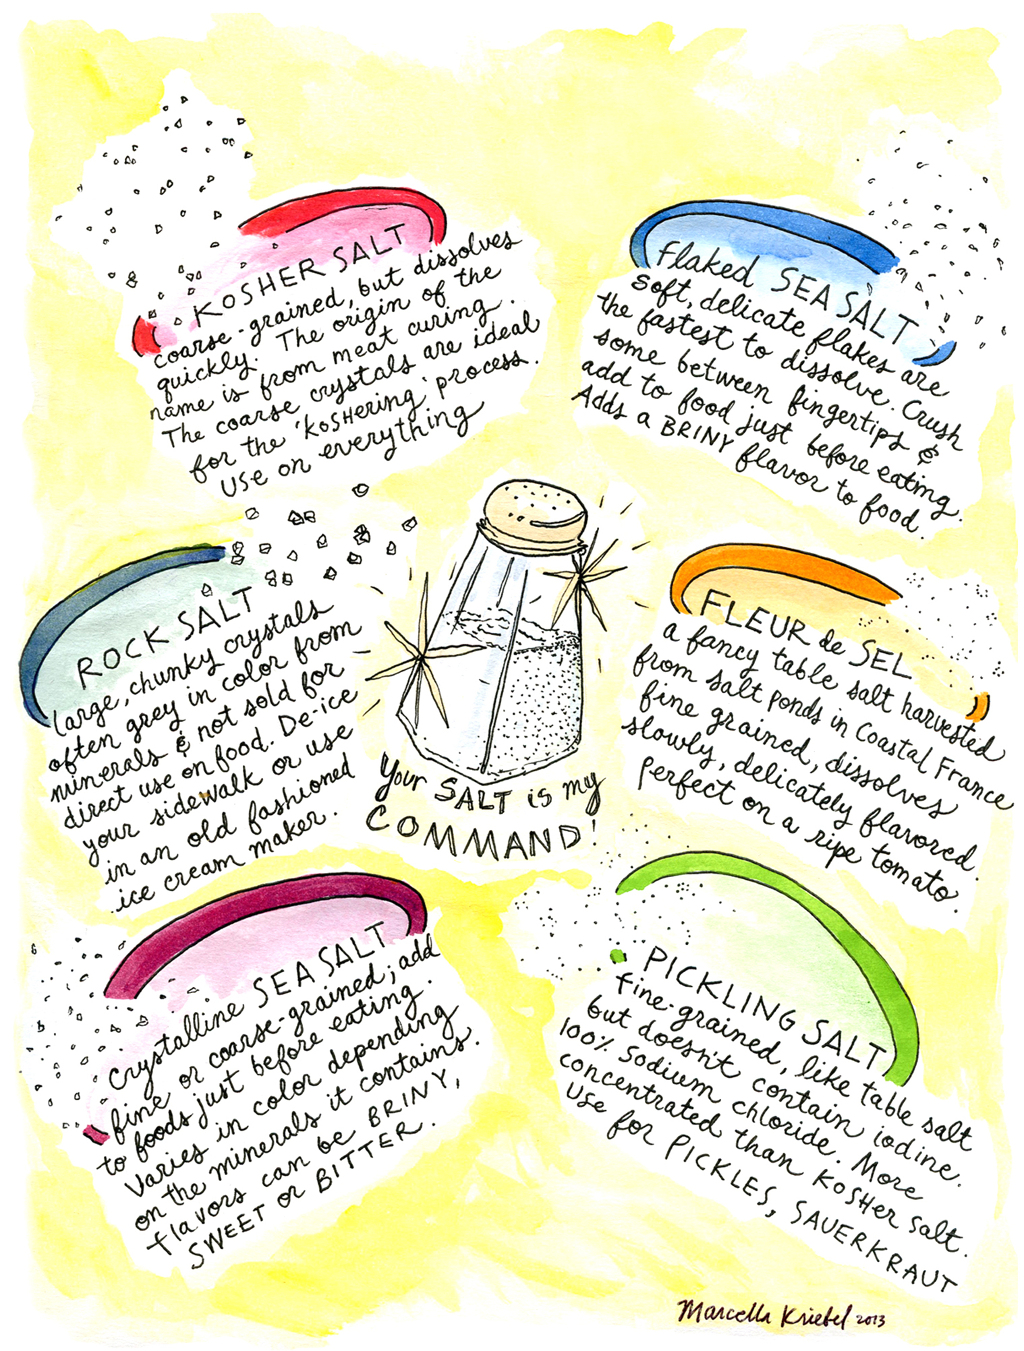 KOSHER SALT
coarse-grained, but dissolves
quickly. The origin of the
name is from meat curing.
The coarse crystals are ideal
for the 'KOSHering' process.
Use on everything
Flaked SEA SALT
Soft, delicate flakes are
the fastest to dissolve. Crush
some between fingertips &
add to food just before eating.
Adds a BRINY flavor to food.
ROCK SALT
large, chunky crystals
often grey in color from
minerals & not sold for
direct use on food. De-ice
your sidewalk or use
in an old fashioned
ice cream maker.
Your SALT is my
COMMAND!
FLEUR de SEL
a fancy table salt harvested
from salt ponds in Coastal France
fine grained, dissolves
slowly, delicately flavored.
Perfect on a ripe tomato.
Crystalline SEA SALT
fine or coarse-grained; add
to foods just before eating.
Varies in color depending
on the minerals it contains.
flavors can be BRINY,
SWEET or BITTER.
PICKLING SALT
fine-grained, like table salt
but doesn't contain iodine.
100% Sodium chloride. More
concentrated than KOSHer salt.
Use for PICKLES, SAUERKRAUT
Marcella Kriebel 2013